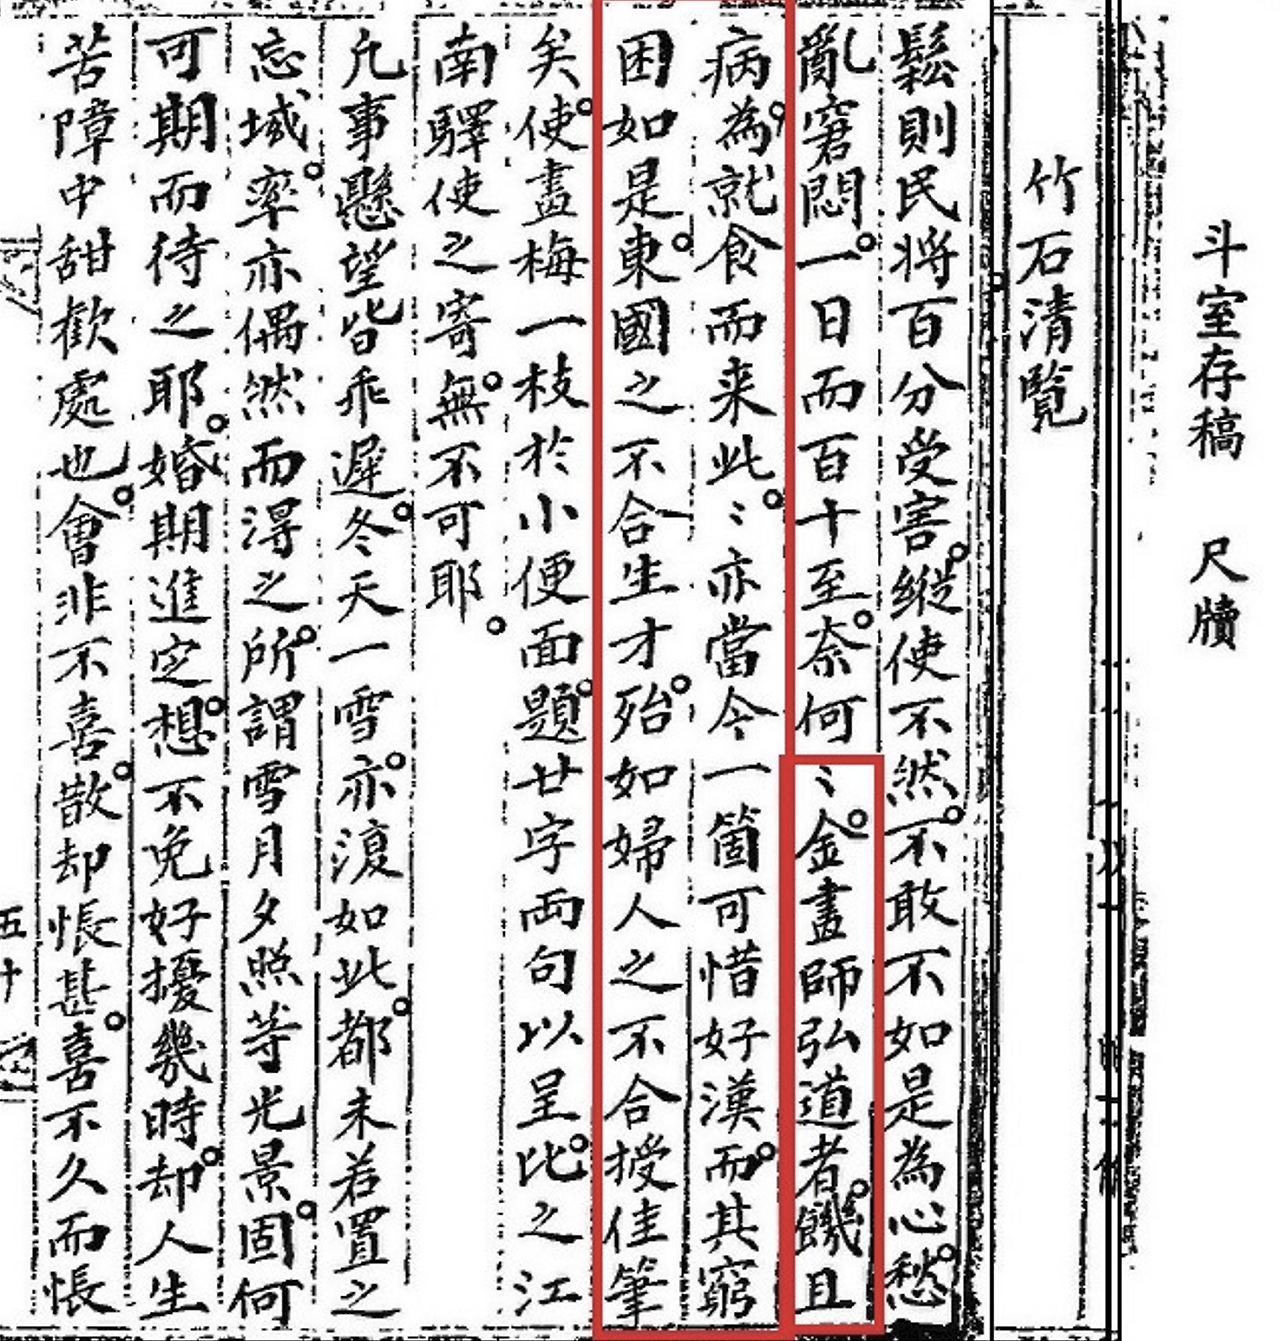 斗室存稿 尺牘
竹石清覧
鬆則民将百分受害縱使不然不敢不如是為心愁
亂窘悶一日而百十至奈何〻金畫師弘道者饑且
病為就食而来此〻亦當今一箇可惜好漢而其窮
困如是東國之不合生才殆如婦人之不合授佳筆
矣使畫梅一枝於小便面題廿字両句以呈比之江
南驛使之寄無不可耶
凢事懸望皆乖遅冬天一雪亦澓如此都未若置之
忘域率亦偶然而淂之所謂雪月夕照等光景固何
可期而待之耶婚期進定想不免好擾幾時却人生
苦障中甜歡處也會非不喜散却悵甚喜不久而悵
五十